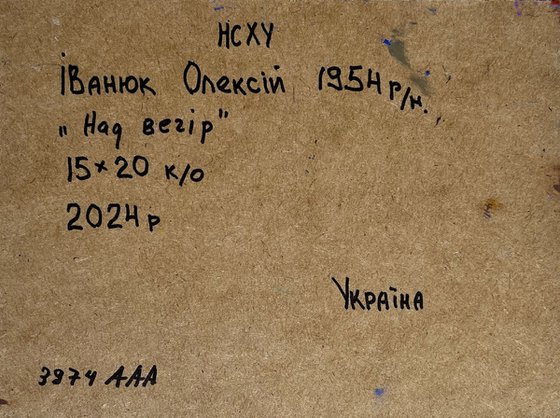 НСХУ
Іванюк Олексій 1954 р/н.
„Над вечір"
15×20 к/о
2024 р
Україна
3974 ААА